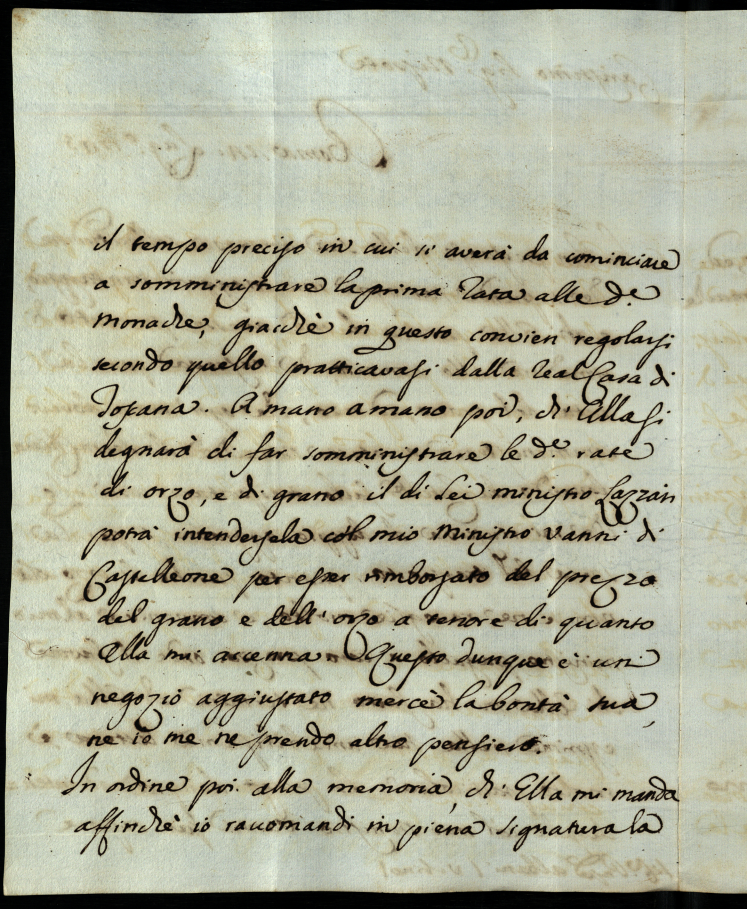 il tempo preciso in cui si averà da cominciare
a somministrare la prima rata alle d.e
Monache, giacchè in questo convien regolarsi
secondo quello pratticavasi dalla Real Casa di
Toscana. A mano a mano poi, ch' Ella si
degnarà di far somministrare le d.e rate
di orzo, e di grano il di Lei ministro Lazzari
potrà intendersela col mio Ministro Vanni di
Castelleone per esser rimborsato del prezzo
del grano e dell'orzo a tenore di quanto
Ella mi accenna. Questo dunque è un
negozio aggiustato mercè la bontà sua,
ne io me ne prendo altro pensiero.
In ordine poi alla memoria, ch' Ella mi manda
affinchè io raccomandi in piena signatura la